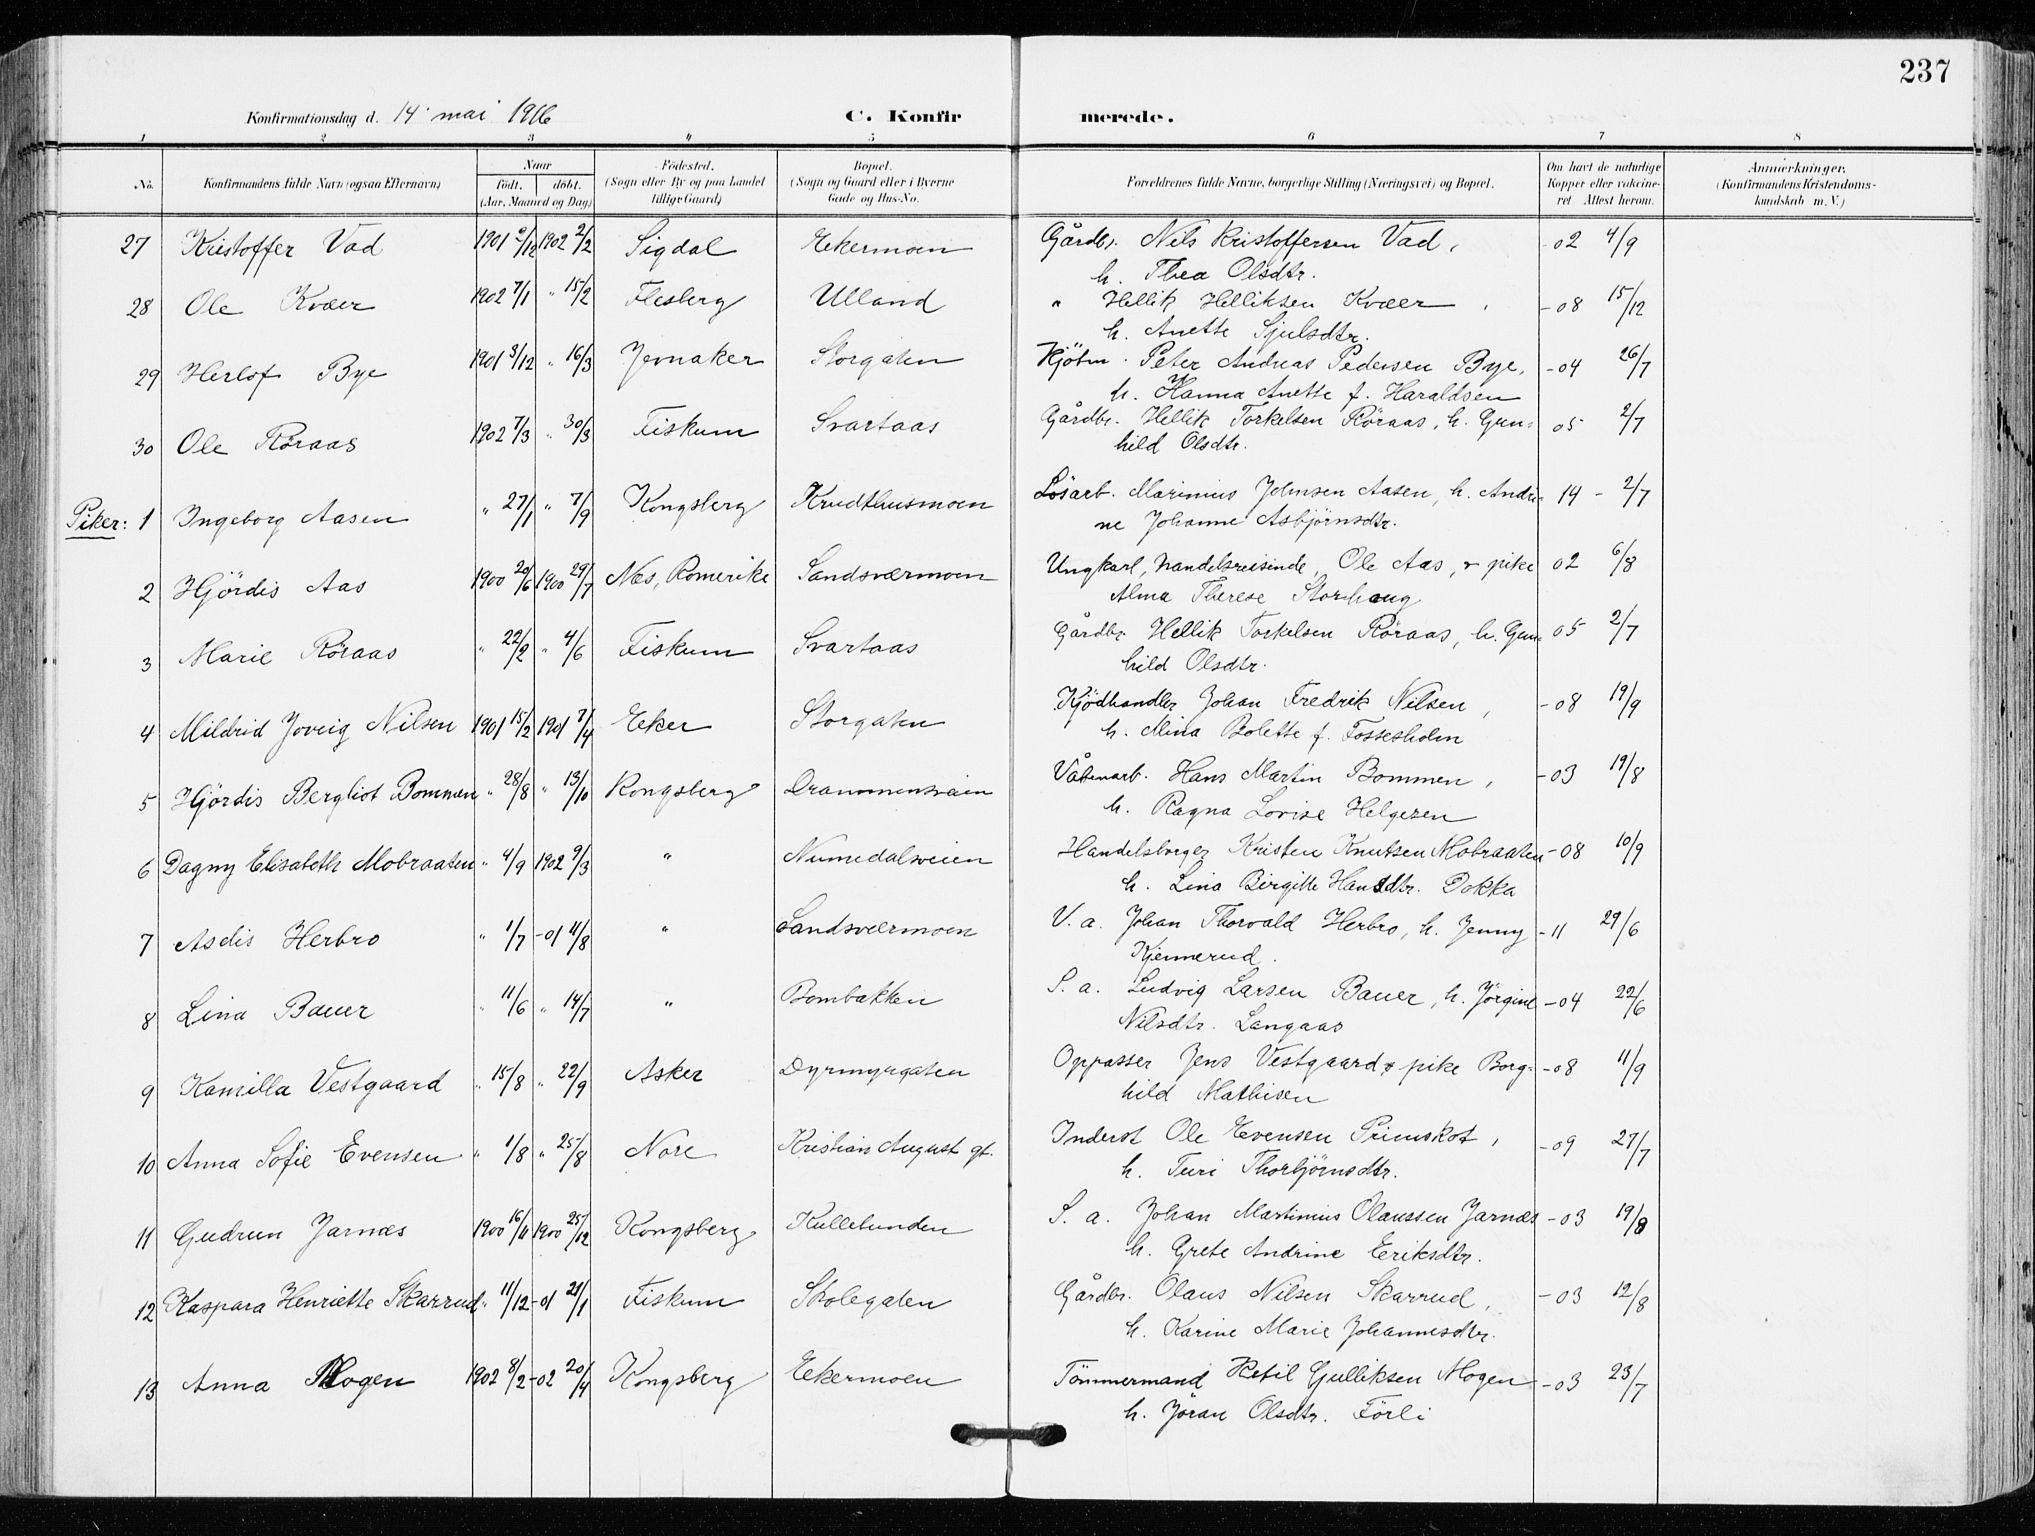 237
Konfirmationsdag d. 14 mai 1916 C. Konfirmerede.
1 2 3 4 5 6 7 8
No. Konfirmandens fulde Navn (ogsaa Efternavn) Naar født. døbt. (Aar, Maaned og Dag) Fødested. (Sogn eller By og paa Landet tillige Gaard) Bopæl. (Sogn og Gaard eller i Byerne Gade og Hus-No. Forældrenes fulde Navne, borgerlige Stilling (Næringsvei) og Bopæl. Om havt de naturlige Kopper eller vakcineret. Attest herom. Anmærkninger. (Konfirmandens Kristendomskundskab m. V.)
27 Kristoffer Vad 1901 /12 1902 2/2 Sigdal Ekermoen Gårdbr. Nils Kristoffersen Vad, -02 4/9
h. Thea Olsdtr.
28 Ole Kvær 1902 7/1 " 15/2 Flesberg Ulland " Hellik Helliksen Kvær, -08 15/12
h. Anette Sjulsdtr.
29 Herlof Bye 1901 3/12 " 16/3 Jevnaker Storgaten Kjöbm. Peter Andreas Pedersen Bye, -04 26/7
h. Hanna Anette f. Haraldsen
30 Ole Röraas 1902 7/3 " 30/3 Fiskum Svartaas Gårdbr. Hellik Torkelsen Röraas, h. Gun- 05 2/7
hild Olsdtr.
Piker: 1 Ingeborg Aasen " 27/1 " 7/9 Kongsberg Krudthusmoen Lösarb. Marinius Johnsen Aasen, h. Andri- 14 - 2/7
ne Johanne Asbjörnsdtr.
2 Hjördis Aas 1900 20/6 1900 29/7 Næs, Romerike Sandsværmoen Ungkarl, handelsreisende, Ole Aas, & pike 02 6/8
Alma Therese Storhaug
3 Marie Röraas " 22/2 " 4/6 Fiskum Svartaas Gårdbr. Hellik Torkelsen Röraas, h. Gun- 05 2/7
hild Olsdtr.
4 Mildrid Joveig Nilsen 1901 15/2 1901 7/4 Eker Storgaten Kjödhandler Johan Fredrik Nilsen, -08 19/9
h. Mina Bolette f. Fossesholm
5 Hjördis Bergliot Bommen " 28/8 " 13/10 Kongsberg Drammensveien Våbenarb. Hans Martin Bommen, -03 19/8
h. Ragna Lovise Helgesen
6 Dagny Elisabeth Mobraaten " 4/9 1902 9/3 " Numedalsveien Handelsborger Kristen Knutsen Mobraaten -08 10/9
h. Lina Birgitte Hansdtr. Dokka
7 Asdis Herbro " 1/7 -01 11/8 " Sandsværmoen V. a. Johan Thorvald Herbro, h. Jenny -11 29/6
Kjennerud.
8 Lina Bauer " 11/6 " 14/7 " Bombakken S. a. Ludvig Larsen Bauer, h. Jörgine -04 22/6
Nilsdtr. Langaas
9 Kamilla Vestgaard " 15/8 " 22/9 Asker Dyrmyrgaten Oppasser Jens Vestgaard & pike Borg- -08 11/9
hild Mathisen
10 Anna Sofie Evensen " 1/8 " 25/8 Nore Kristian August gt. Inderst Ole Evensen Primskot, -09 27/7
h. Turi Thorbjörnsdtr.
11 Gudrun Jarnæs 1900 16/11 1900 25/12 Kongsberg Kullelunden S. a. Johan Martinius Olaussen Jarnæs -03 19/8
h. Grete Andrine Eriksdtr.
12 Kaspara Henriette Skarrud " 11/12 -01 21/1 Fiskum Skolegaten Gårdbr. Olaus Nilsen Skarrud, -03 12/8
h. Karine Marie Johannesdtr.
13 Anna Mogen 1902 8/2 -02 20/4 Kongsberg Ekermoen Tömmermand Ketil Gulliksen Mogen -03 23/7
h. Jöran Olsdtr. Förli